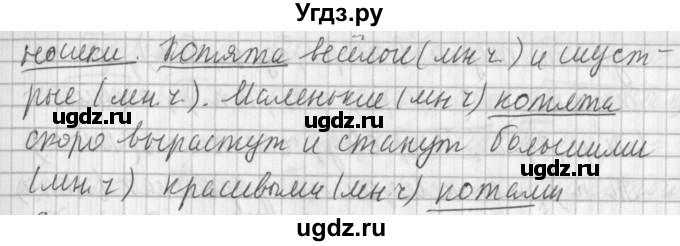 Угдз.ру
ношки. Котята весёлые (мн ч.) и шуст-
рые (мн. ч.). Маленькие (мн ч) котята
скоро вырастут и станут большими
(мн. ч) красивыми (мн ч) котами
ugdz.ru ugdz.ru
ugdz.ru
ugdz.ru
ugdz.ru ugdz.ru